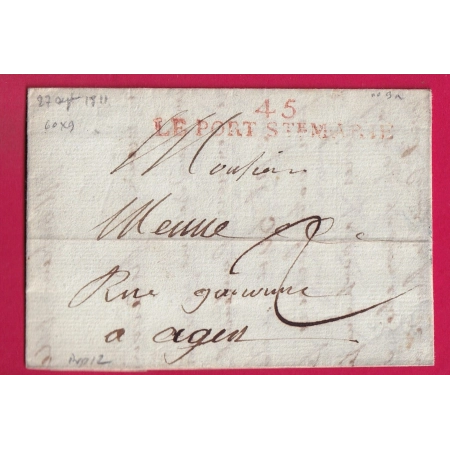 27 sept 1811
60x9
45
LE PORT STE MARIE
Monsieur
Menne
2
Rue garonne
a agen